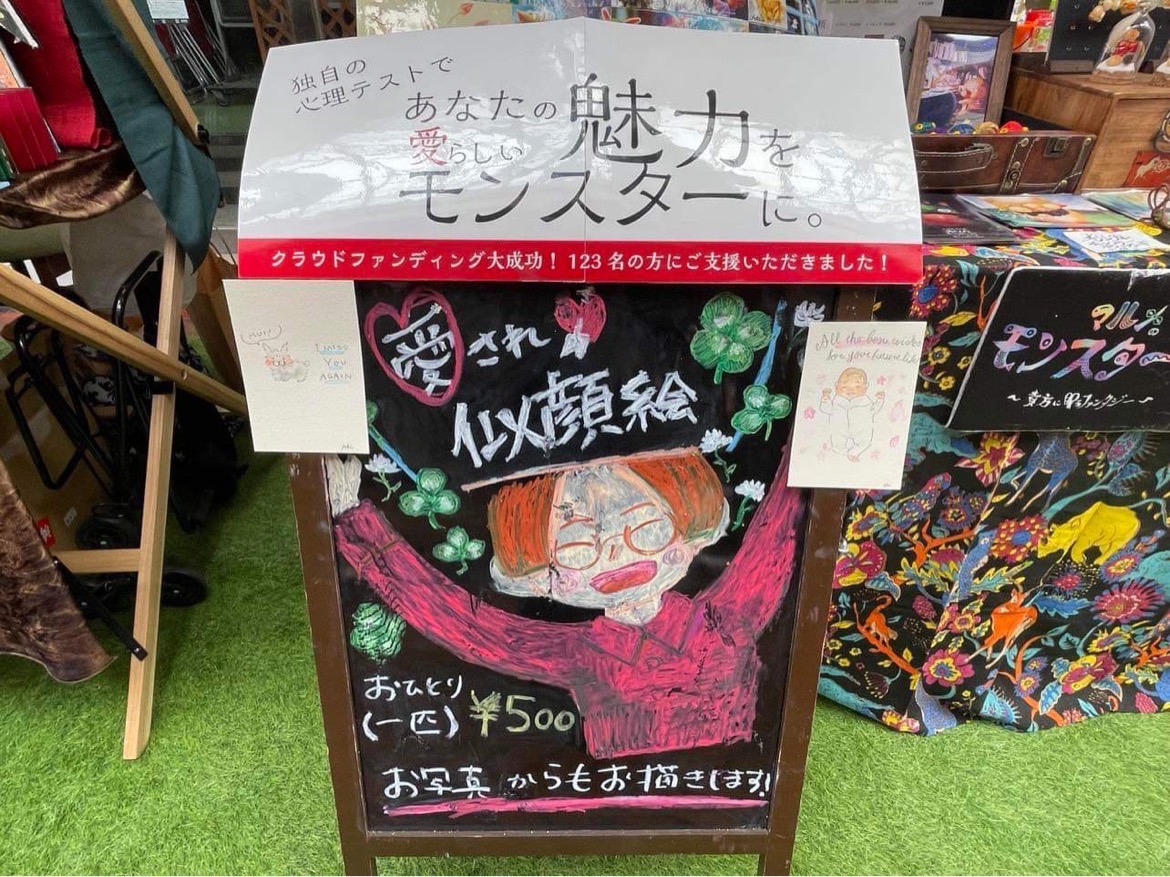 独自の
心理テストで
あなたの魅力を
愛らしい
モンスターに。
クラウドファンディング大成功！ 123名の方にご支援いただきました！
I MISS
YOU
AGAIN
愛され
似顔絵
All the best wishes
for your
おひとり
(一匹) ¥500
お写真からもお描きします!
マルメ
モンスター
〜貴方に